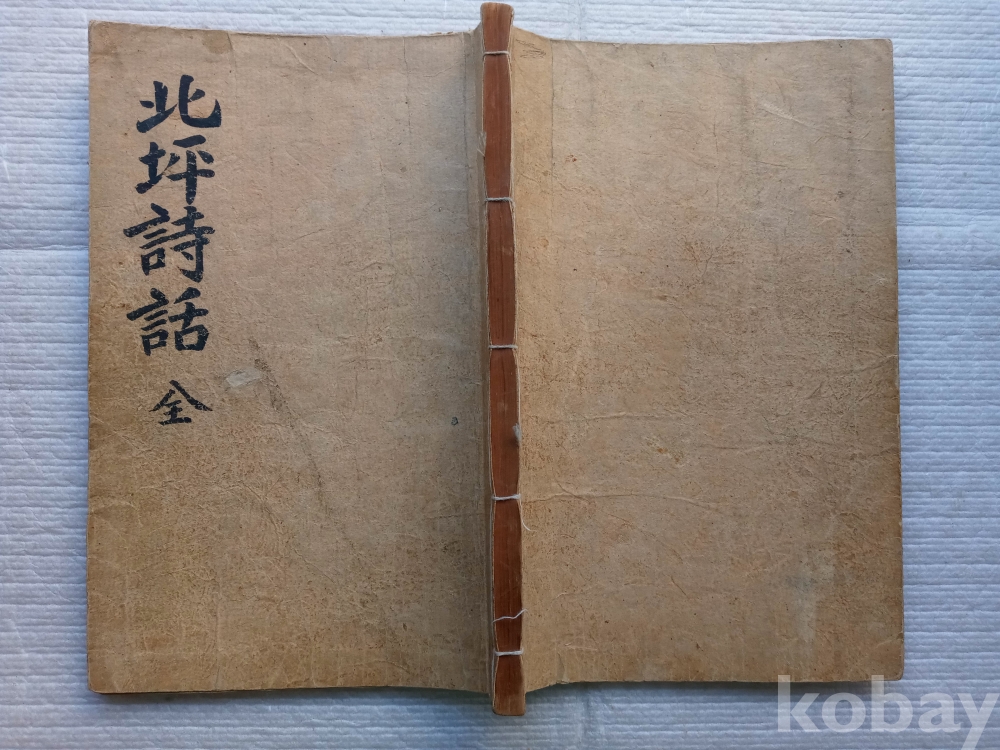 北坪詩話 全
kobay